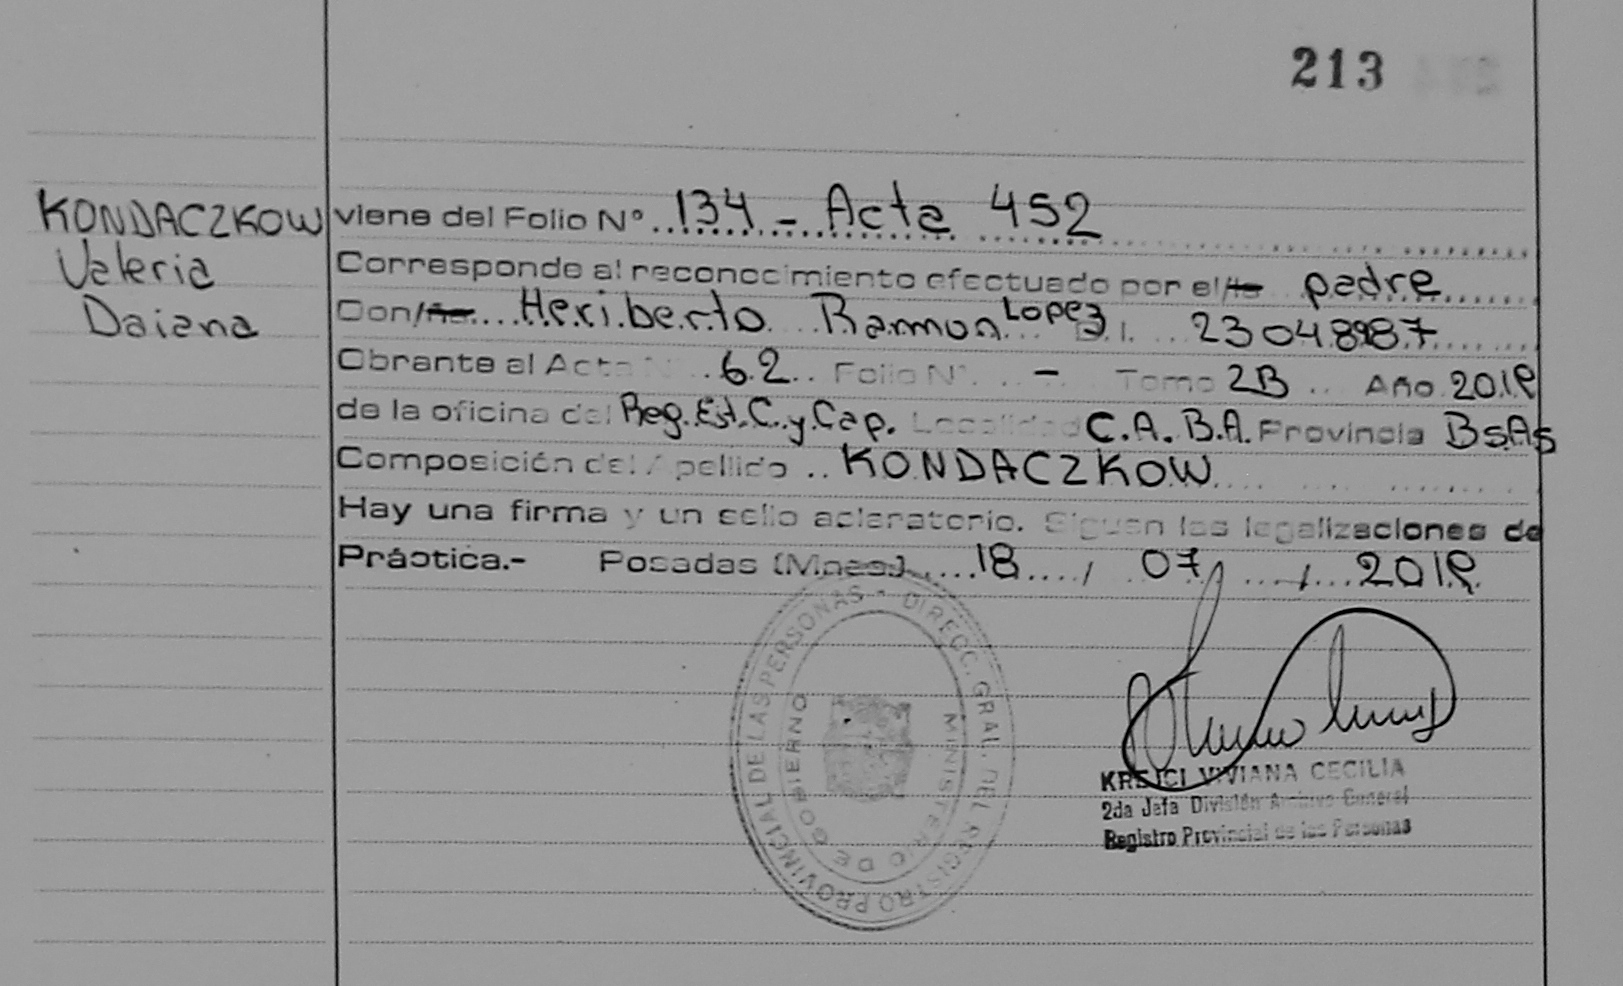 213
KONDACZKOW
Valeria
Daiana
viene del Folio Nº 134 - Acta 452
Corresponde al reconocimiento efectuado por el/la padre
Don/ña Heriberto Ramon Lopez D.I. 23048987
Obrante al Acta N 62 Folio Nº - Tomo 2B Año 2019
de la oficina del Reg. Est. C. y Cap. Localidad C.A.B.A. Provincia BsAs
Composición del Apellido KONDACZKOW
Hay una firma y un sello aclaratorio. Siguen las legalizaciones de
Práctica.- Posadas (Mnes) 18 / 07 / 2019
DIRECC. GRAL. DEL REGISTRO PROVINCIAL DE LAS PERSONAS
MINISTERIO DE GOBIERNO
KREJCI VIVIANA CECILIA
2da Jefa División Archivo General
Registro Provincial de las Personas